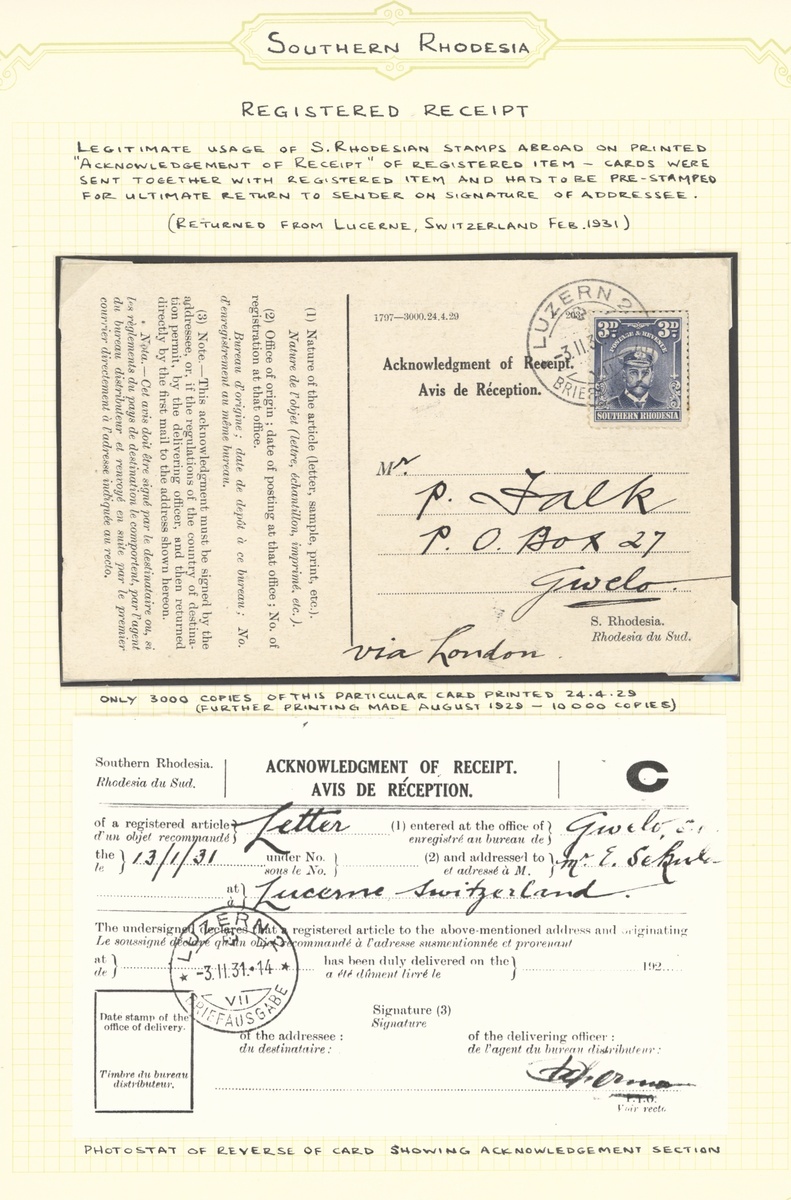 SOUTHERN RHODESIA
REGISTERED RECEIPT
LEGITIMATE USAGE OF S. RHODESIAN STAMPS ABROAD ON PRINTED
"ACKNOWLEDGEMENT OF RECEIPT" OF REGISTERED ITEM – CARDS WERE
SENT TOGETHER WITH REGISTERED ITEM AND HAD TO BE PRE-STAMPED
FOR ULTIMATE RETURN TO SENDER ON SIGNATURE OF ADDRESSEE.
(RETURNED FROM LUCERNE, SWITZERLAND FEB. 1931)
(1) Nature of the article (letter, sample, print, etc.).
Nature de l'objet (lettre, échantillon, imprimé, etc.).
(2) Office of origin; date of posting at that office; No. of
registration at that office.
Bureau d'origine; date de depôt à ce bureau; No.
d'enregistrement au même bureau.
(3) Note.—This acknowledgment must be signed by the
addressee, or, if the regulations of the country of destina-
tion permit, by the delivering officer, and then returned
directly by the first mail to the address shown hereon.
Nota.—Cet avis doit être signé par le destinataire ou, si
les règlements du pays de destination le comportent, par l'agent
du bureau distributeur et renvoyé en suite par le premier
courrier directement à l'adresse indiquée au recto.
1797—3000.24.4.29
Acknowledgment of Receipt.
Avis de Réception.
LUZERN 2
-3.II.3
3D. 3D.
POSTAGE & REVENUE
SOUTHERN RHODESIA
Mr.
P. Falk
P. O. Box 27
Gwelo.
S. Rhodesia.
Rhodesia du Sud.
via London.
ONLY 3000 COPIES OF THIS PARTICULAR CARD PRINTED 24.4.29
(FURTHER PRINTING MADE AUGUST 1929 – 10000 COPIES)
Southern Rhodesia.
Rhodesia du Sud.
ACKNOWLEDGMENT OF RECEIPT.
AVIS DE RÉCEPTION.
C
of a registered article } Letter (1) entered at the office of } Gwelo,
d'un objet recommandé enregistré au bureau de
the } 13/1/31 under No. } (2) and addressed to } Mr. E.
le sous le No. et adressé à M.
at } Lucerne Switzerland.
à
The undersigned declares that a registered article to the above-mentioned address and originating
Le soussigné déclare qu'un objet recommandé à l'adresse susmentionnée et provenant
at } has been duly delivered on the } 192
de a été dûment livré le
LUZERN 2
-3.II.31.-14
VII
BRIEFAUSGABE
Date stamp of the
office of delivery.
Timbre du bureau
distributeur.
Signature (3)
Signature
of the addressee: of the delivering officer:
du destinataire: de l'agent du bureau distributeur:
P.T.O.
Voir recto.
PHOTOSTAT OF REVERSE OF CARD SHOWING ACKNOWLEDGEMENT SECTION